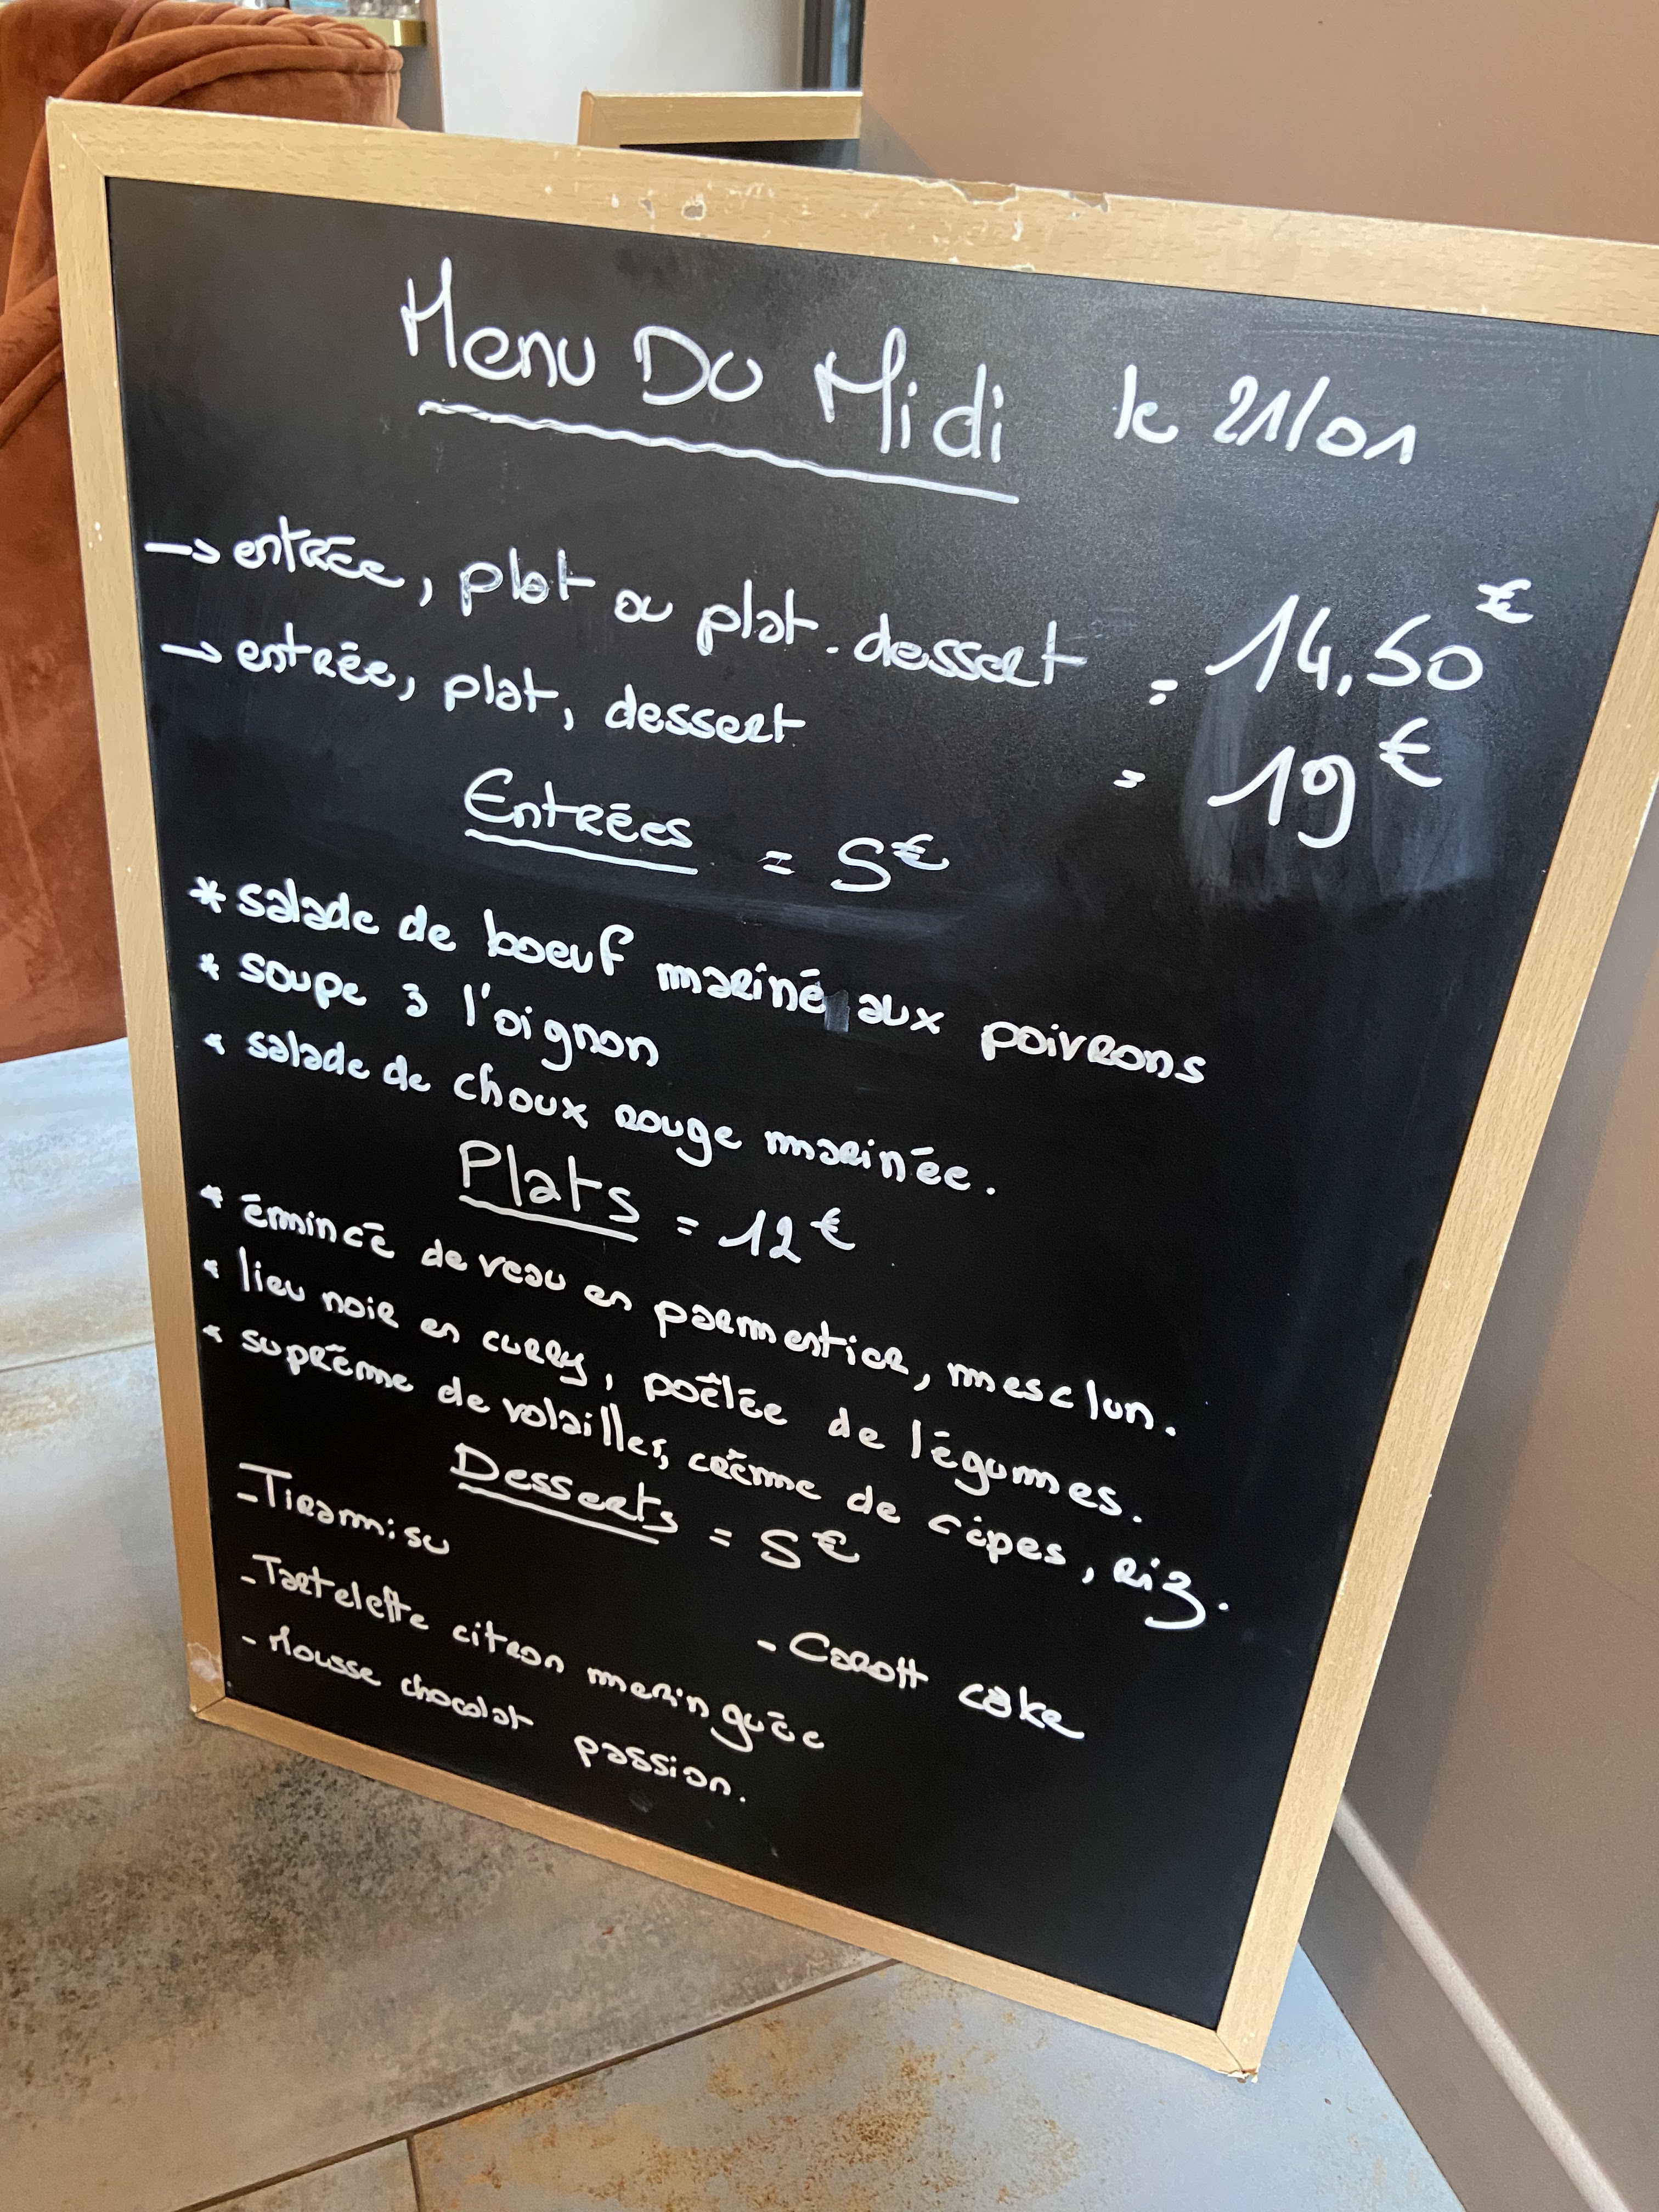 Menu Du Midi le 21/01
→ entrée, plat ou plat. dessert = 14,50€
→ entrée, plat, dessert = 19€
Entrées = 5€
* salade de boeuf mariné aux poivrons
* soupe à l'oignon
* salade de choux rouge marinée.
Plats = 12€
* émincé de veau en parmentier, mesclun.
* lieu noir en curry, poêlée de légumes.
* suprême de volailles, crème de cèpes, riz.
Desserts = 5€
- Tiramisu
- Carott cake
- Tartelette citron meringuée
- Mousse chocolat passion.